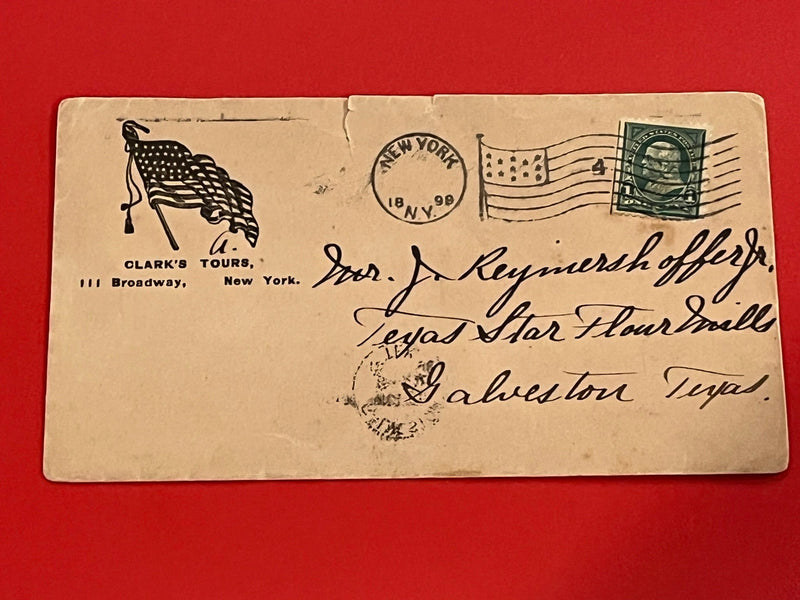 NEW YORK
18 98
N.Y.
4
1
CLARK'S TOURS,
111 Broadway, New York.
Mr. J. Reymershoffer Jr.
Texas Star Flour Mills
Galveston Texas.